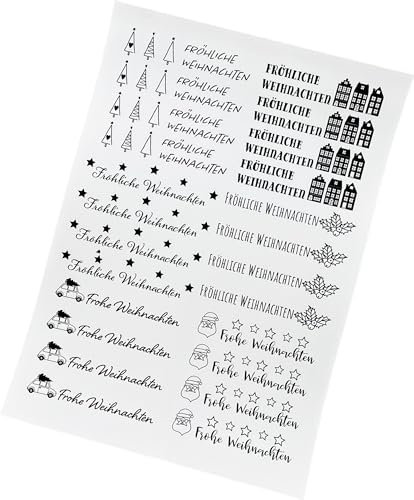 FRÖHLICHE
WEIHNACHTEN
FRÖHLICHE
WEIHNACHTEN
FRÖHLICHE
WEIHNACHTEN
FRÖHLICHE
WEIHNACHTEN
FRÖHLICHE
WEIHNACHTEN
FRÖHLICHE
WEIHNACHTEN
FRÖHLICHE
WEIHNACHTEN
FRÖHLICHE
WEIHNACHTEN
Fröhliche Weihnachten
Fröhliche Weihnachten
Fröhliche Weihnachten
Fröhliche Weihnachten
FRÖHLICHE WEIHNACHTEN
FRÖHLICHE WEIHNACHTEN
FRÖHLICHE WEIHNACHTEN
FRÖHLICHE WEIHNACHTEN
Frohe Weihnachten
Frohe Weihnachten
Frohe Weihnachten
Frohe Weihnachten
Frohe Weihnachten
Frohe Weihnachten
Frohe Weihnachten
Frohe Weihnachten